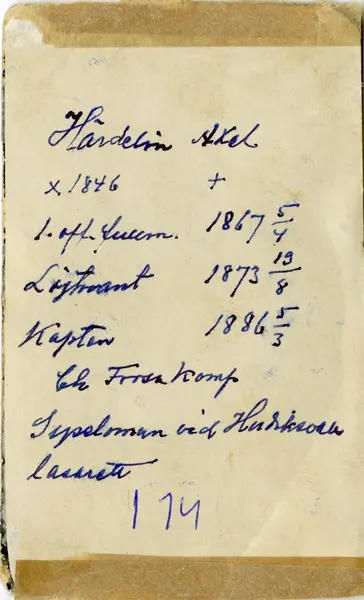 Hårdelin Axel
x 1846 +
1867 5/4
Löjtnant 1873 19/8
Kapten 1886 5/3
Ch Frösö Komp
Sysseloman vid Hudiksvalls
lasarett
174